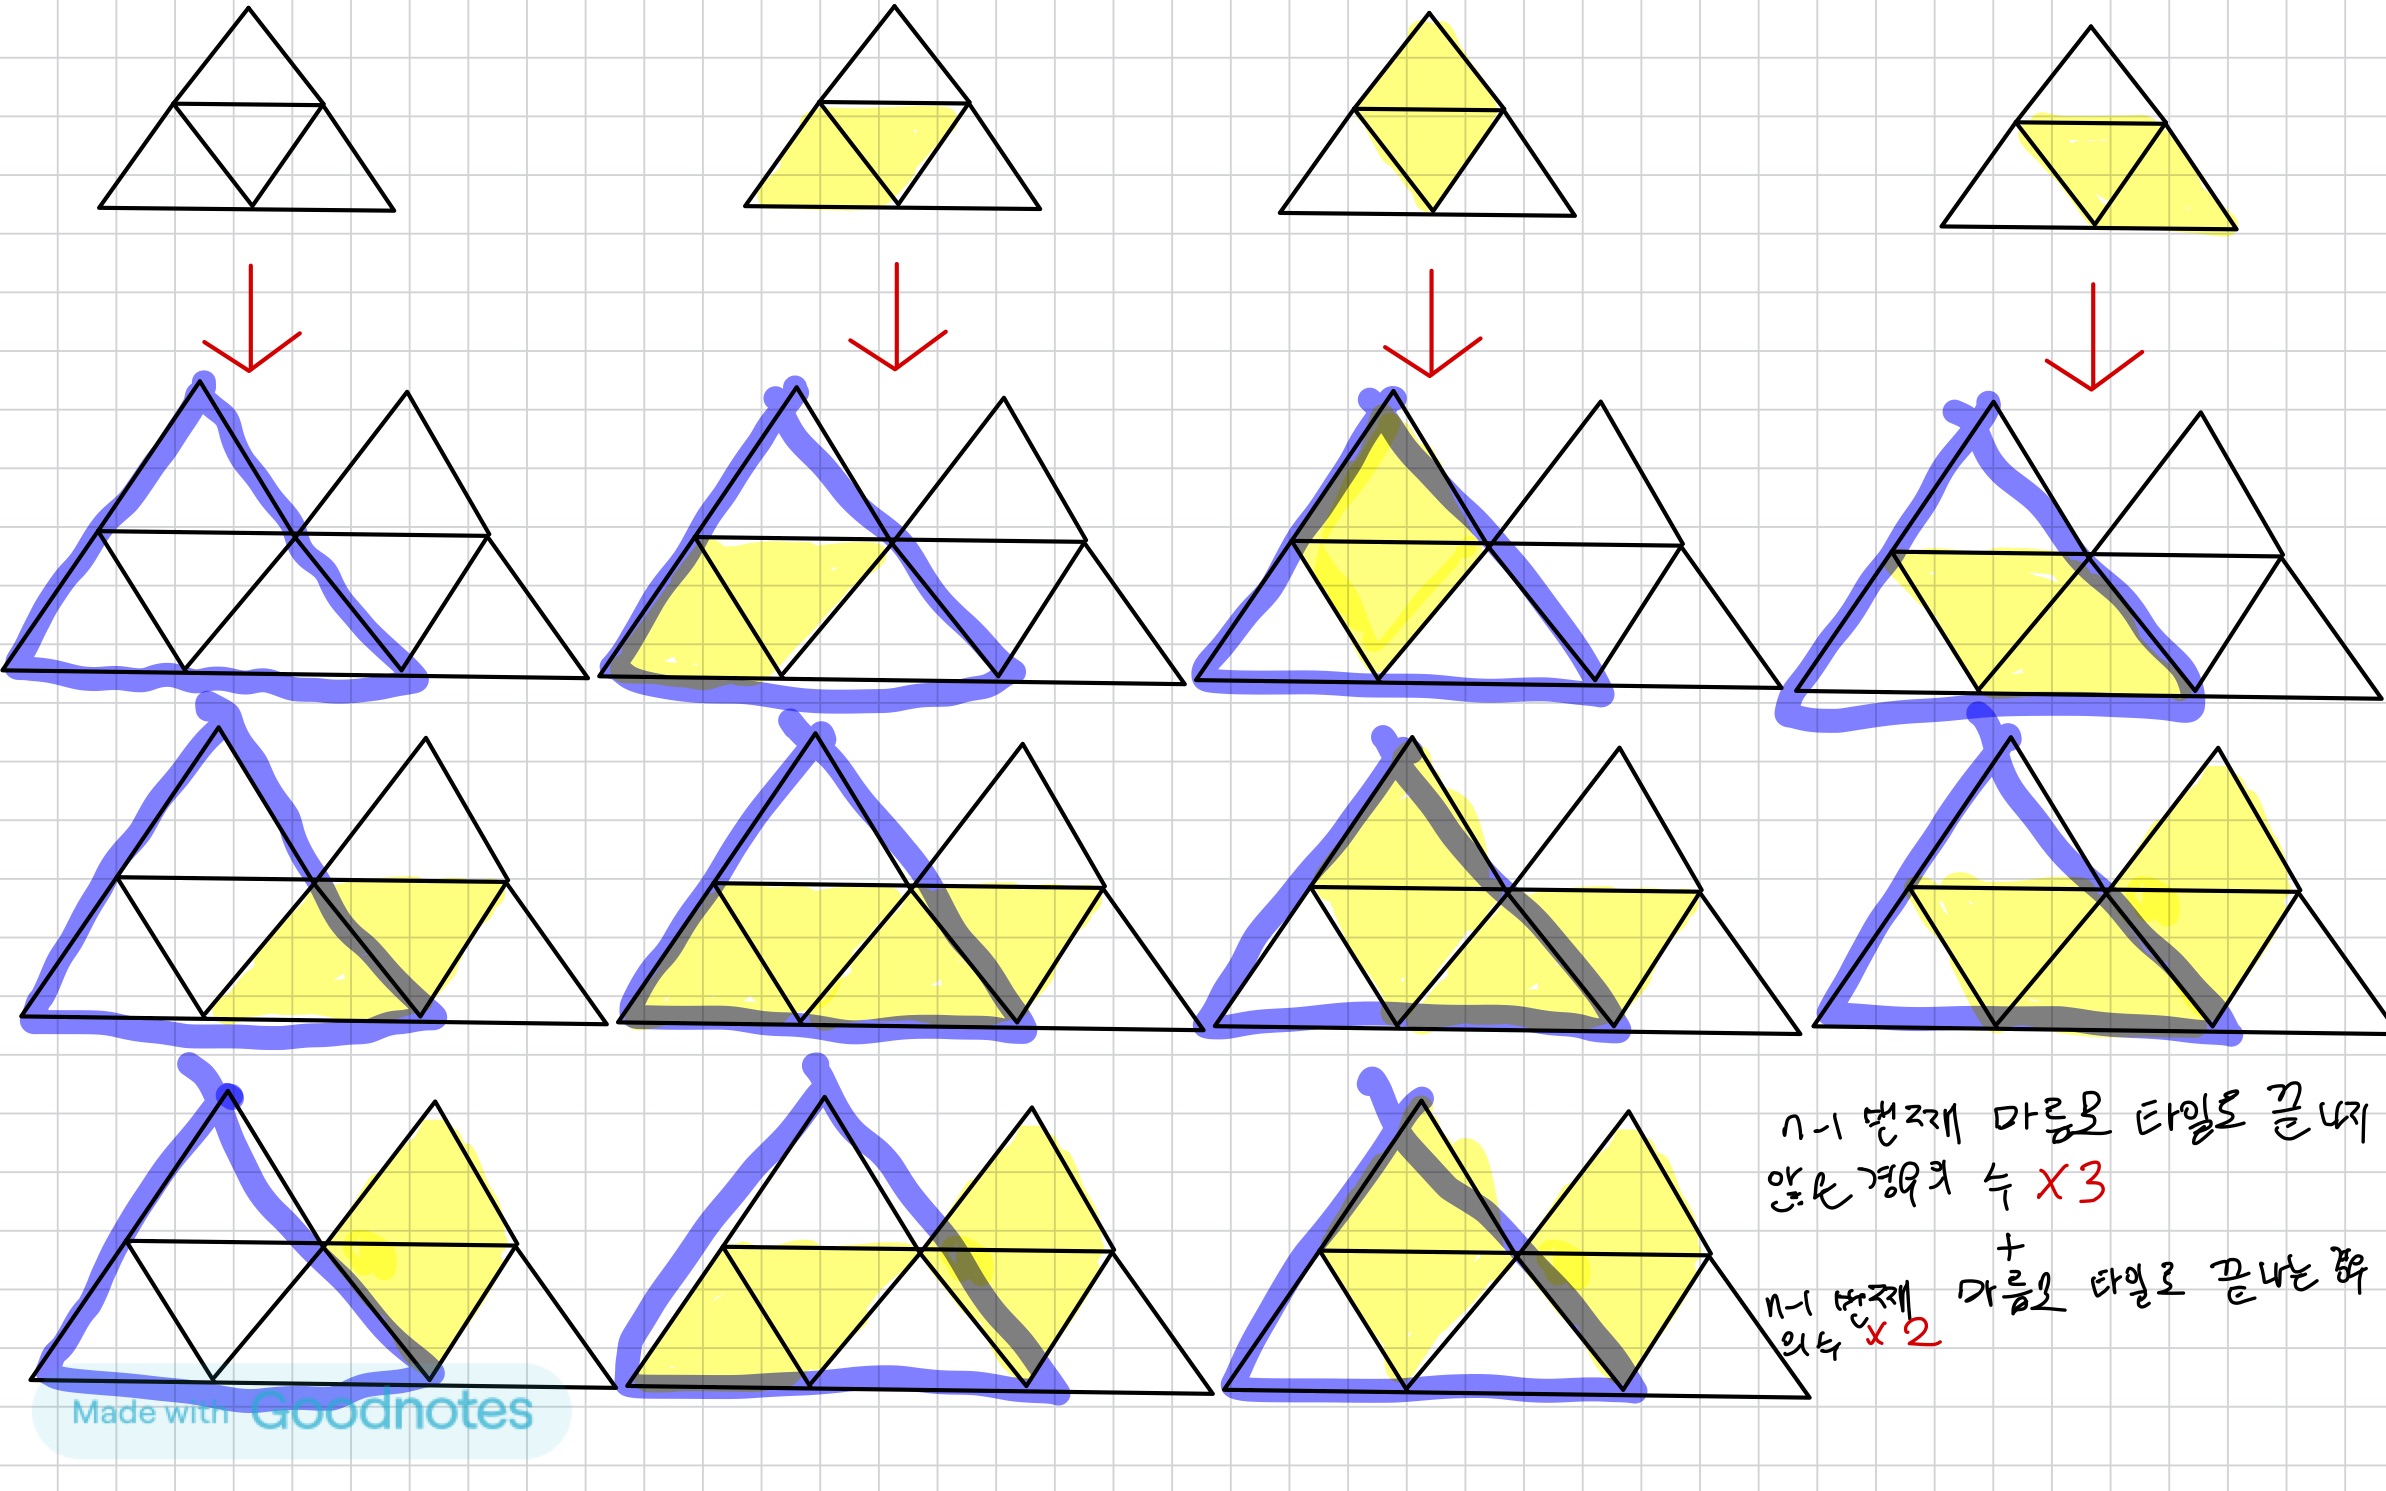 n-1 번째 마름모 타일로 끝내지
않은 경우의 수 x3
+
n-1 번째 마름모 타일로 끝내는 쪽
의 수 x2
Made with Goodnotes